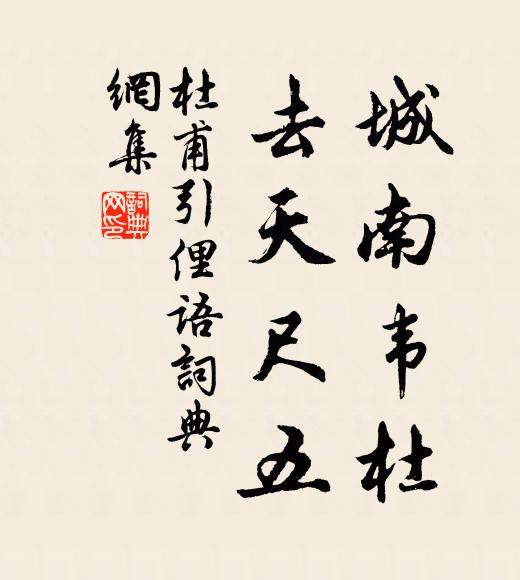 城南韦杜
去天尺五
杜甫引俚语詞典
網集
詞典网印